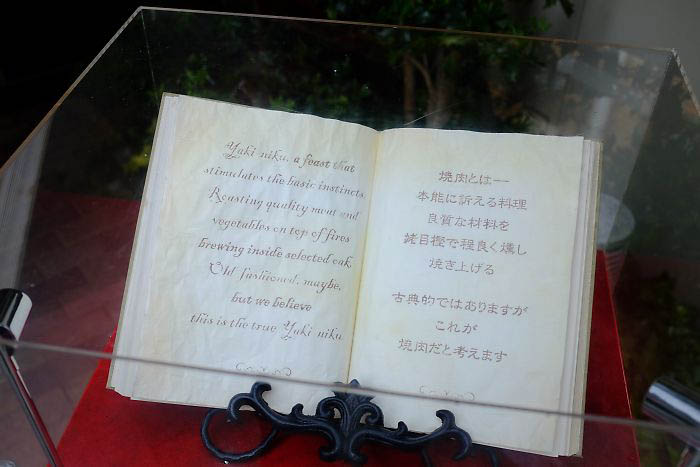 Yaki niku, a feast that
stimulates the basic instincts.
Roasting quality meat and
vegetables on top of fires
brewing inside selected oak.
Old fashioned, maybe,
but we believe
this is the true Yaki niku
焼肉とは——
本能に訴える料理
良質な材料を
姥目樫で程良く燻し
焼き上げる
古典的ではありますが
これが
焼肉だと考えます